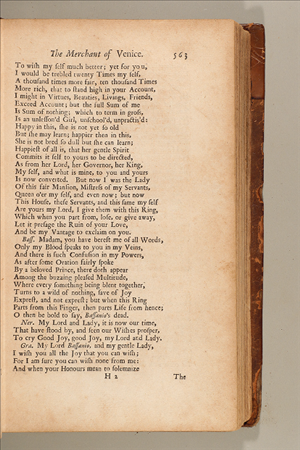 The Merchant of Venice. 563
To wish my self much better; yet for you,
I would be trebled twenty Times my self,
A thousand times more fair, ten thousand Times
More rich, that to stand high in your Account,
I might in Virtues, Beauties, Livings, Friends,
Exceed Account; but the full Sum of me
Is Sum of nothing; which to term in gross,
Is an unlesson'd Girl, unschool'd, unpractis'd:
Happy in this, she is not yet so old
But she may learn; happier then in this,
She is not bred so dull but she can learn;
Happiest of all is, that her gentle Spirit
Commits it self to yours to be directed,
As from her Lord, her Governor, her King,
My self, and what is mine, to you and yours
Is now converted. But now I was the Lady
Of this fair Mansion, Mistress of my Servants,
Queen o'er my self, and even now; but now
This House, these Servants, and this same my self
Are yours my Lord, I give them with this Ring,
Which when you part from, lose, or give away,
Let it presage the Ruin of your Love,
And be my Vantage to exclaim on you.
Bass. Madam, you have bereft me of all Words,
Only my Blood speaks to you in my Veins,
And there is such Confusion in my Powers,
As after some Oration fairly spoke
By a beloved Prince, there doth appear
Among the buzzing pleased Multitude,
Where every something being blent together,
Turns to a wild of nothing, save of Joy
Exprest, and not exprest; but when this Ring
Parts from this Finger, then parts Life from hence;
O then be bold to say, Bassanio's dead.
Ner. My Lord and Lady, it is now our time,
That have stood by, and seen our Wishes prosper,
To cry Good Joy, good Joy, my Lord and Lady.
Gra. My Lord Bassanio, and my gentle Lady,
I wish you all the Joy that you can wish;
For I am sure you can wish none from me:
And when your Honours mean to solemnize
H 2 The